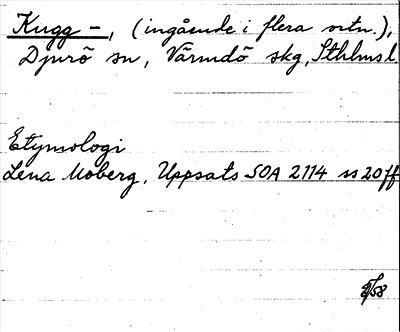 Kugg-, (ingående i flera ortn.),
Djurö sn, Värmdö skg, Sthlms l.
Etymologi
Lena Moberg, Uppsats SOA 2114 ss 20 ff
/58